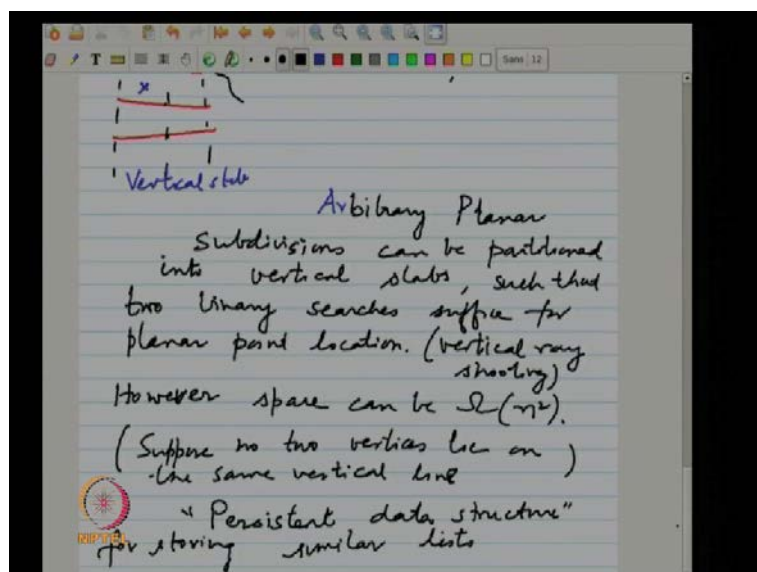 T Sans 12
x
Vertical slab
Arbitrary Planar
Subdivisions can be partitioned
into vertical slabs, such that
two binary searches suffice for
planar point location. (vertical ray
shooting)
However space can be Ω(n²).
(Suppose no two vertices lie on)
the same vertical line
"Persistent data structure"
for storing similar lists
NPTEL